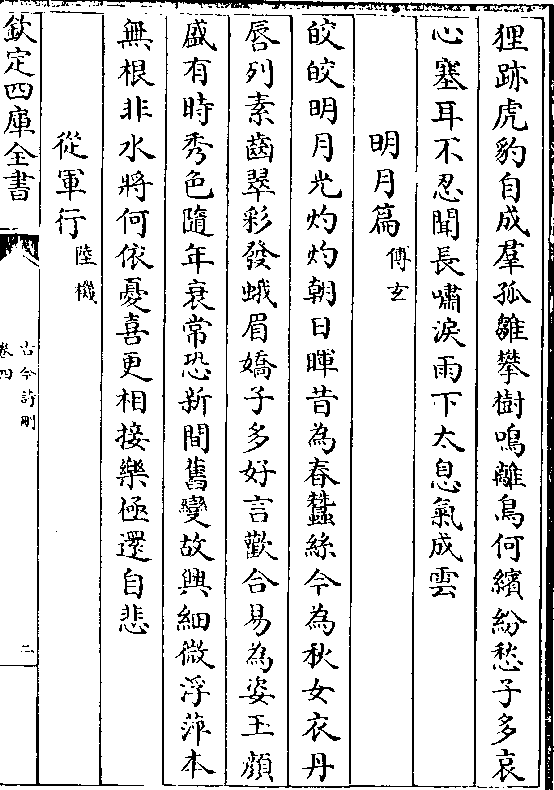 狸跡虎豹自成羣孤雛攀樹鳴離鳥何繽紛愁子多哀
心塞耳不忍聞長嘯淚雨下太息氣成雲
明月篇 傅玄
皎皎明月光灼灼朝日暉昔為春蠶絲今為秋女衣丹
唇列素齒翠彩發蛾眉嬌子多好言歡合易為姿玉顏
盛有時秀色隨年衰常恐新間舊變故興細微浮萍本
無根非水將何依憂喜更相接樂極還自悲
從軍行 陸機
欽定四庫全書
古今詩刪
卷四
二